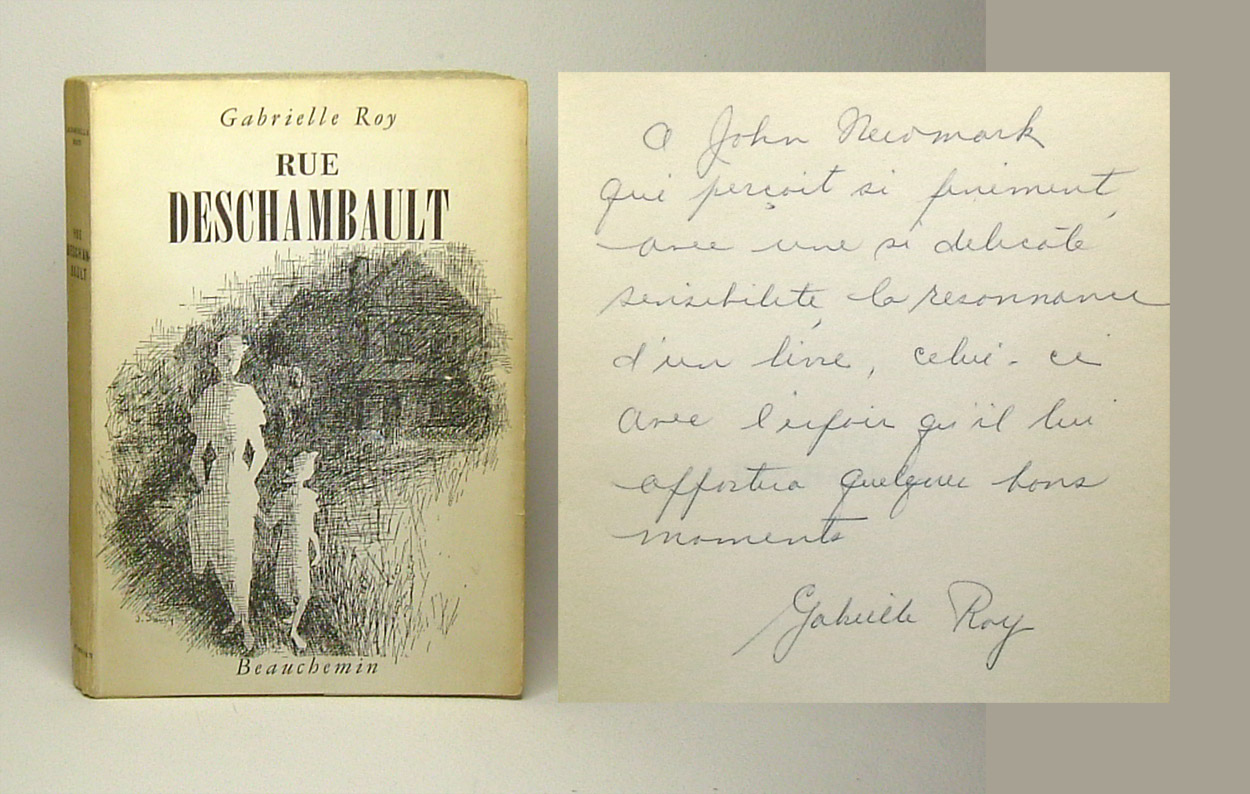 Gabrielle Roy
RUE
DESCHAMBAULT
Beauchemin
GABRIELLE
ROY
RUE
DESCHAM-
BAULT
A John Newmark
qui perçoit si finement,
avec une si délicate
sensibilité la resonnance
d'un livre, celui-ci
avec l'espoir qu'il lui
apportera quelques bons
moments
Gabrielle Roy